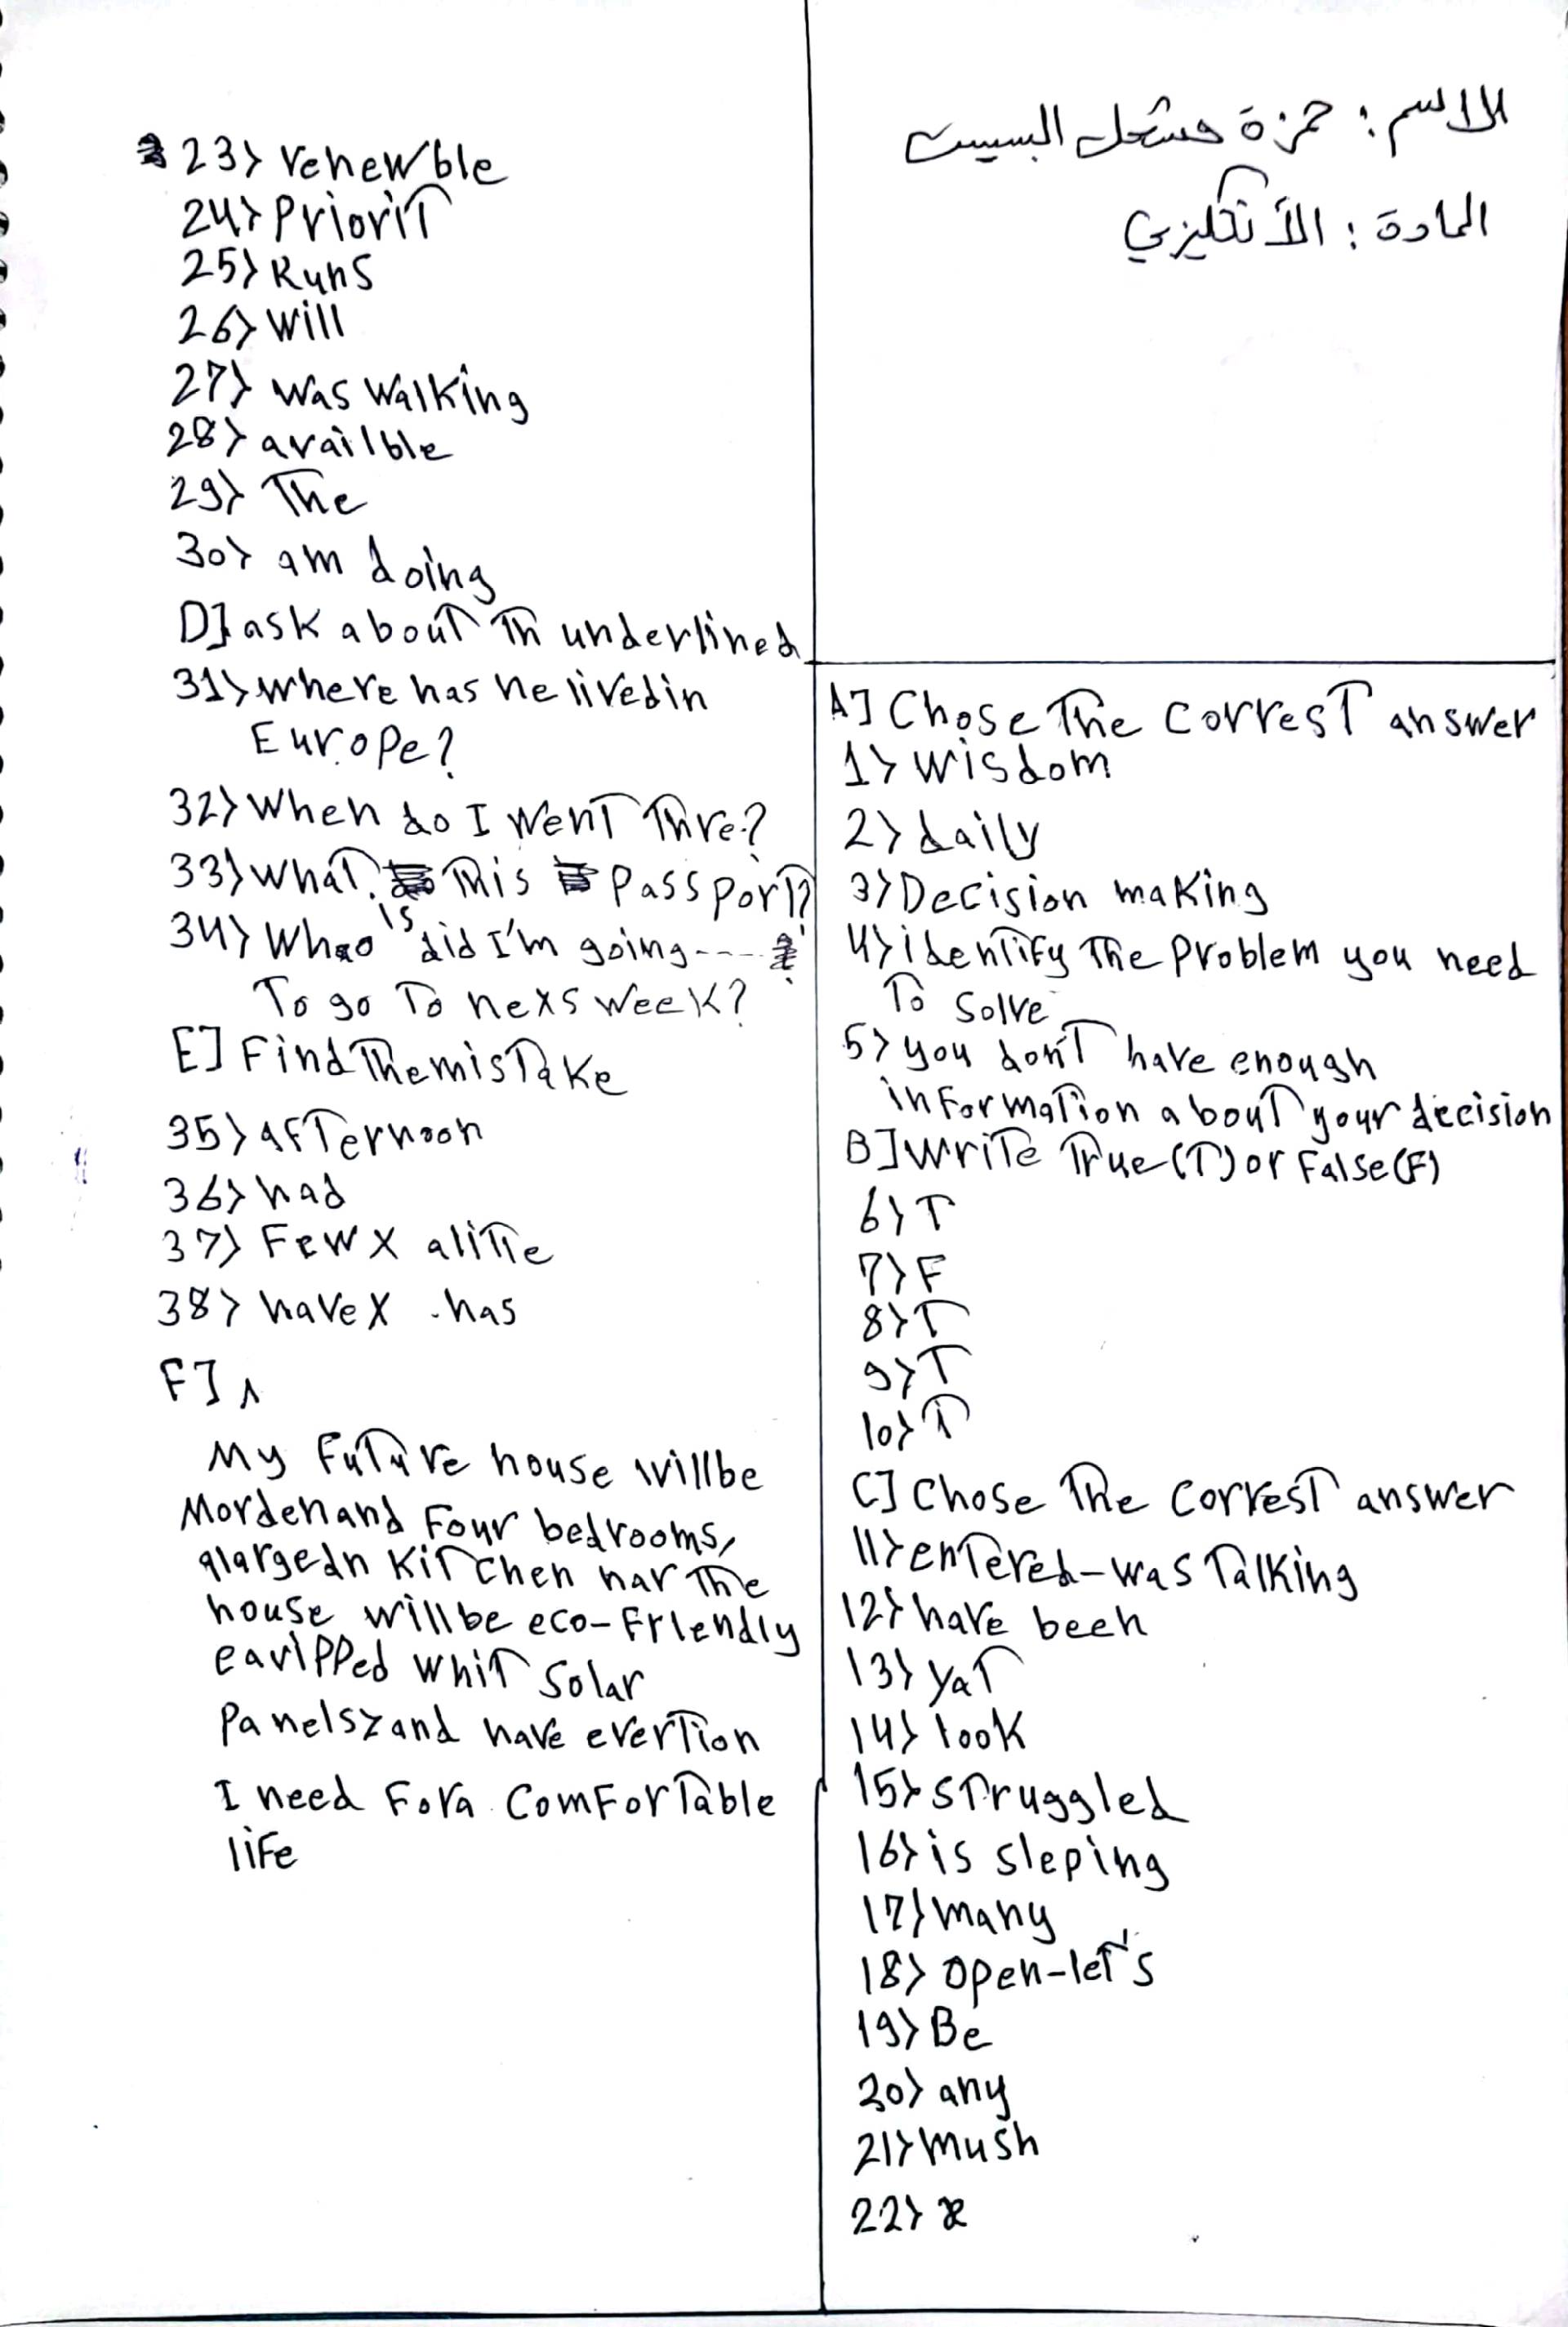 الاسم : حمزة مشعل السبيت
المادة : الأنكليزي
A] Chose The correst answer
1> wisdom
2> daily
3> Decision making
4> identify The Problem you need
To solve
5> you don't have enough
information about your decision
B] write True (T) or False (F)
6> T
7> F
8> T
9> T
10> T
C] Chose The correst answer
11> entered-was Talking
12> have been
13> yaT
14> look
15> struggled
16> is sleping
17> many
18> open-let's
19> Be
20> any
21> mush
22> a
23> renewble
24> Priorit
25> Runs
26> will
27> was walking
28> availble
29> The
30> am doing
D] ask about Th underlined
31> where has he lived in
Europe?
32> When do I went Thre?
33> what is This Passport?
34> Who did I'm going----
To go To nexs week?
E] Find The mistake
35> afternoon
36> had
37> Few X alitte
38> have X . has
F] 1
My future house will be
Morden and Four bedrooms,
alargedn Kitchen nar The
house will be eco-Friendly
earipped whit solar
Panels, and have evertion
I need Fora comfortable
life